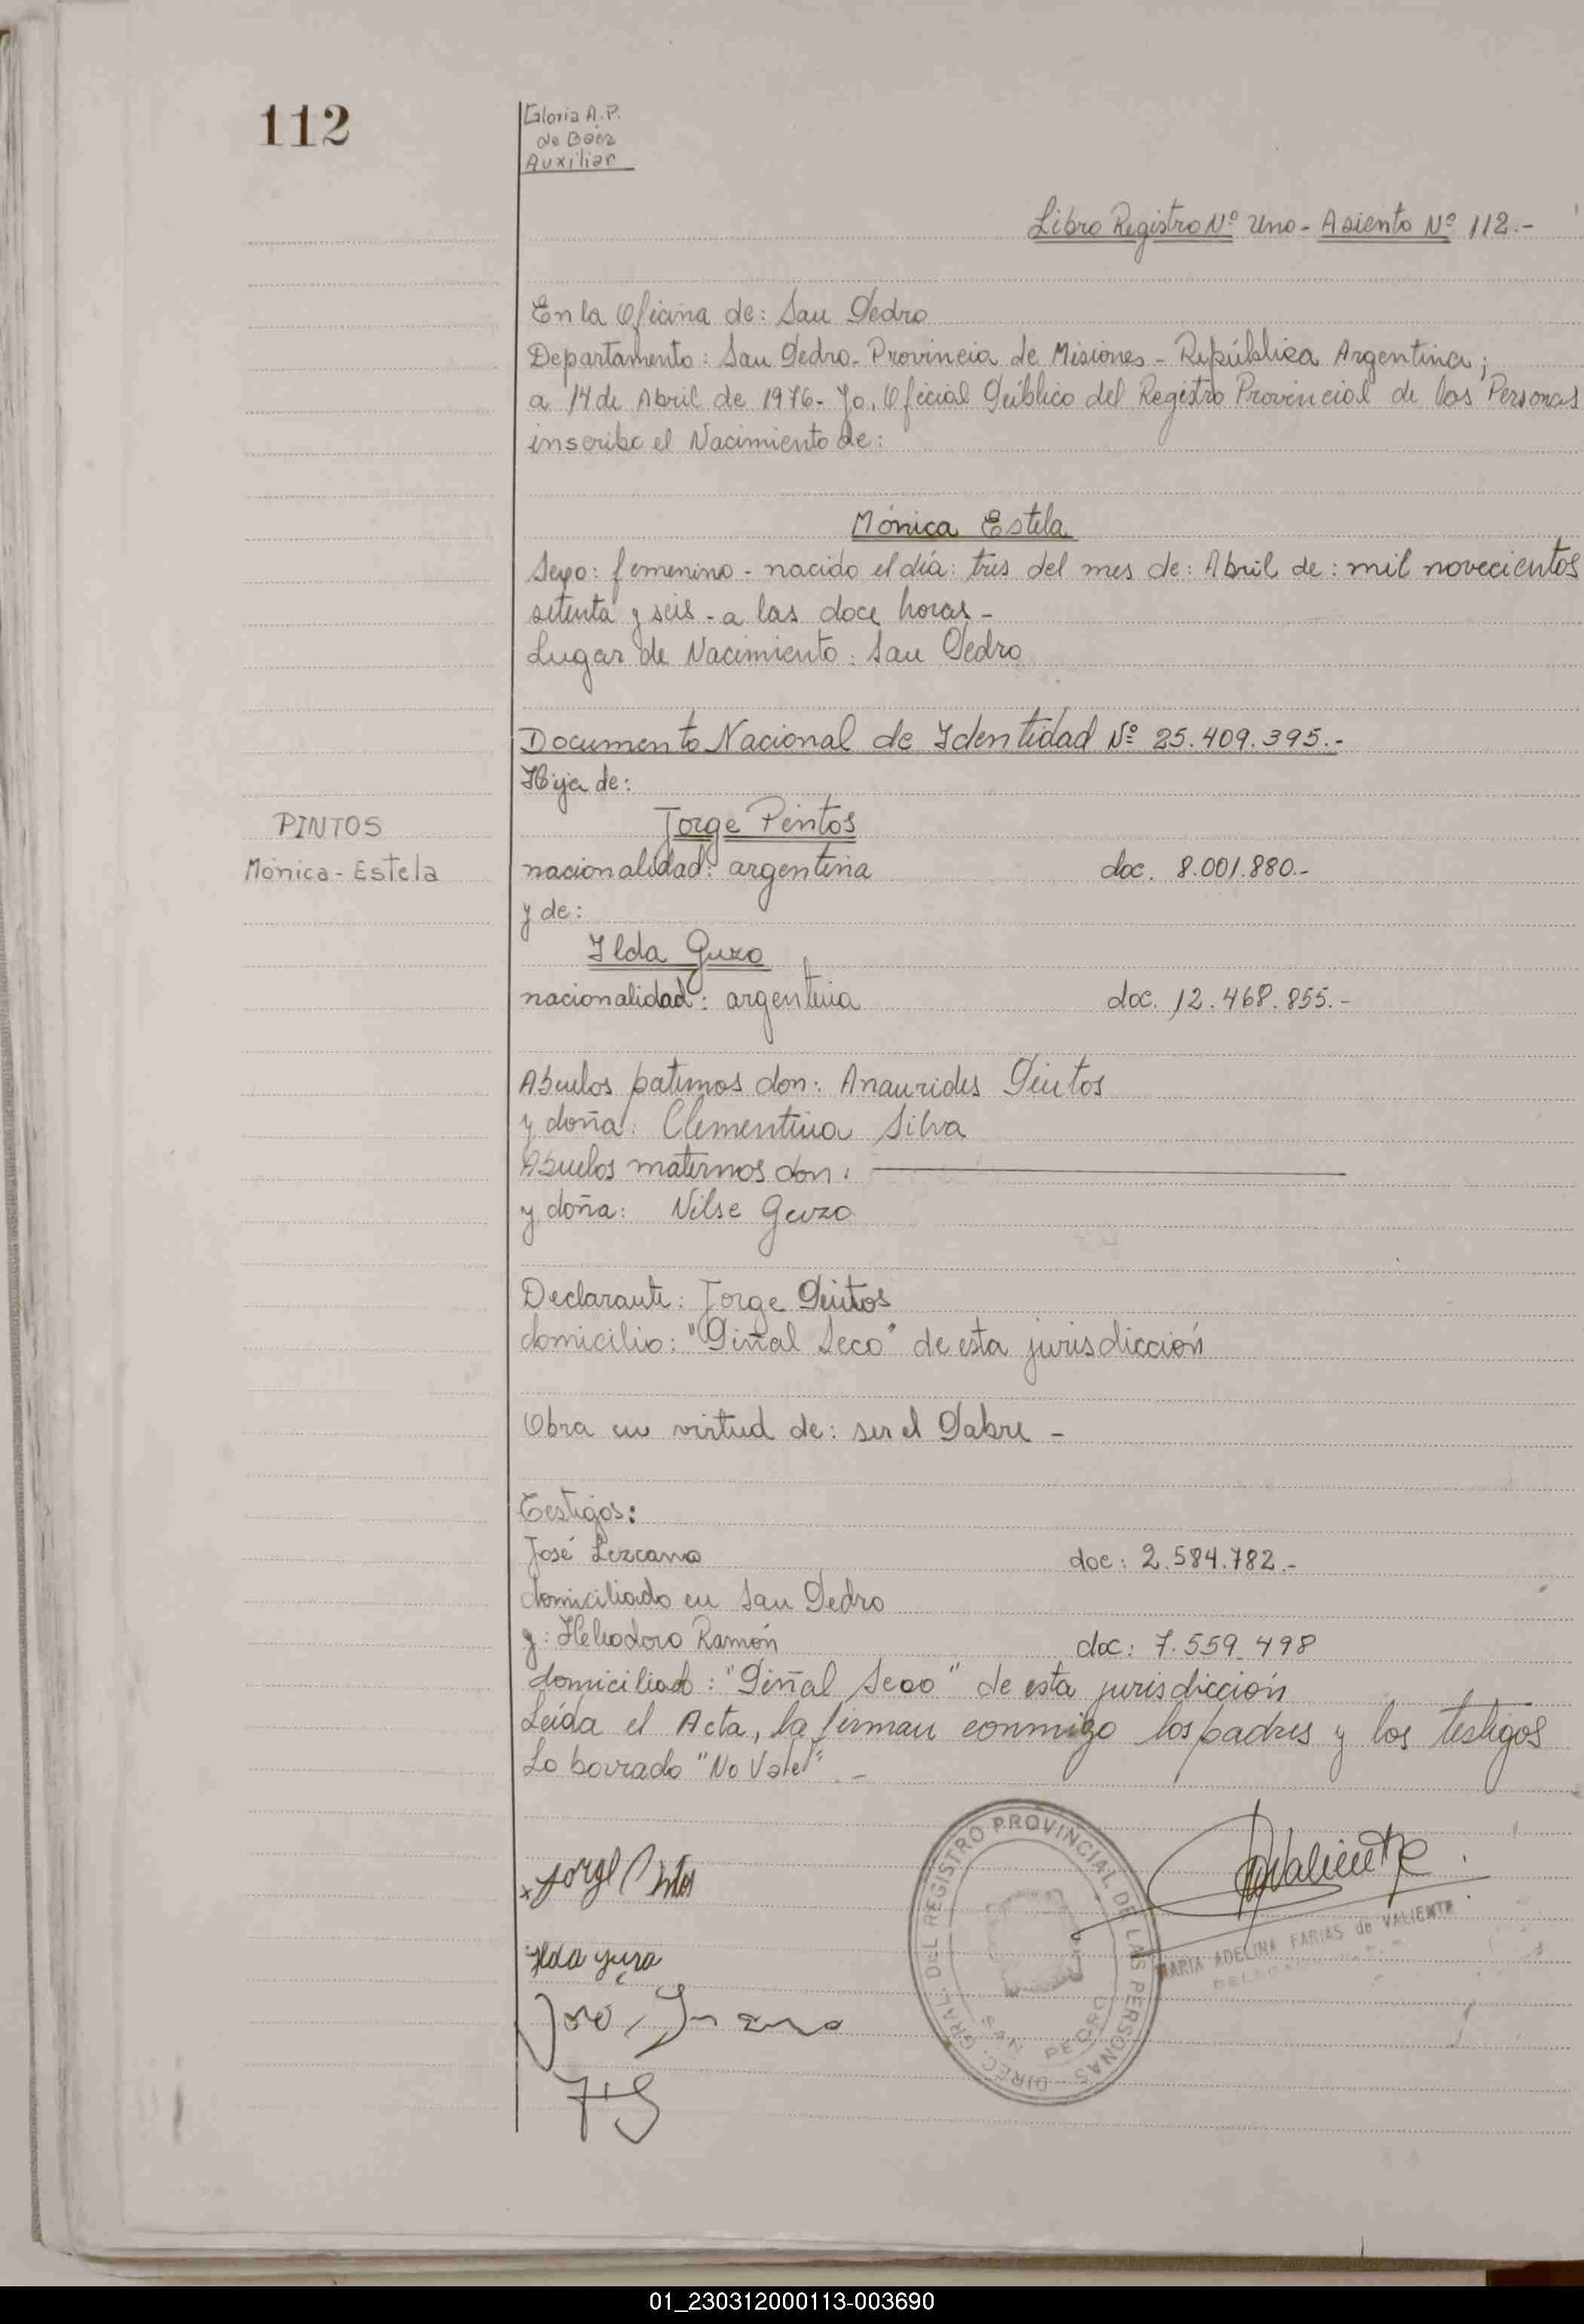 112
Gloria A.P.
de Báez
Auxiliar
Libro Registro Nº Uno - Asiento Nº 112.-
En la Oficina de: San Pedro
Departamento: San Pedro - Provincia de Misiones - República Argentina;
a 14 de Abril de 1976 - Yo, Oficial Público del Registro Provincial de las Personas
inscribo el Nacimiento de:
Mónica Estela
Sexo: femenino - nacido el día: tres del mes de: Abril de: mil novecientos
setenta y seis - a las doce horas -
Lugar de Nacimiento: San Pedro
Documento Nacional de Identidad Nº 25.409.395.-
Hija de:
Jorge Pintos
PINTOS
Mónica - Estela
nacionalidad: argentina doc. 8.001.880.-
y de:
Ilda Guzo
nacionalidad: argentina doc. 12.468.855.-
Abuelos paternos don: Anaurides Pintos
y doña: Clementina Silva
Abuelos maternos don:
y doña: Nilse Guzo
Declarante: Jorge Pintos
domicilio: "Piñal Seco" de esta jurisdicción
Obra en virtud de: ser el Pabre -
Testigos:
José Lezcano doc: 2.584.782.-
domiciliado en San Pedro
y: Heliodoro Ramón doc: 7.559.498
domiciliado: "Piñal Seco" de esta jurisdicción
Leída el Acta, la firman conmigo los padres y los testigos
Lo borrado "No Vale" -
x Jorge Pintos
Valiente
DIREC. GRAL. DEL REGISTRO PROVINCIAL DE LAS PERSONAS
SAN PEDRO
MARIA ADELINA FARIAS de VALIENTE
Ilda
José